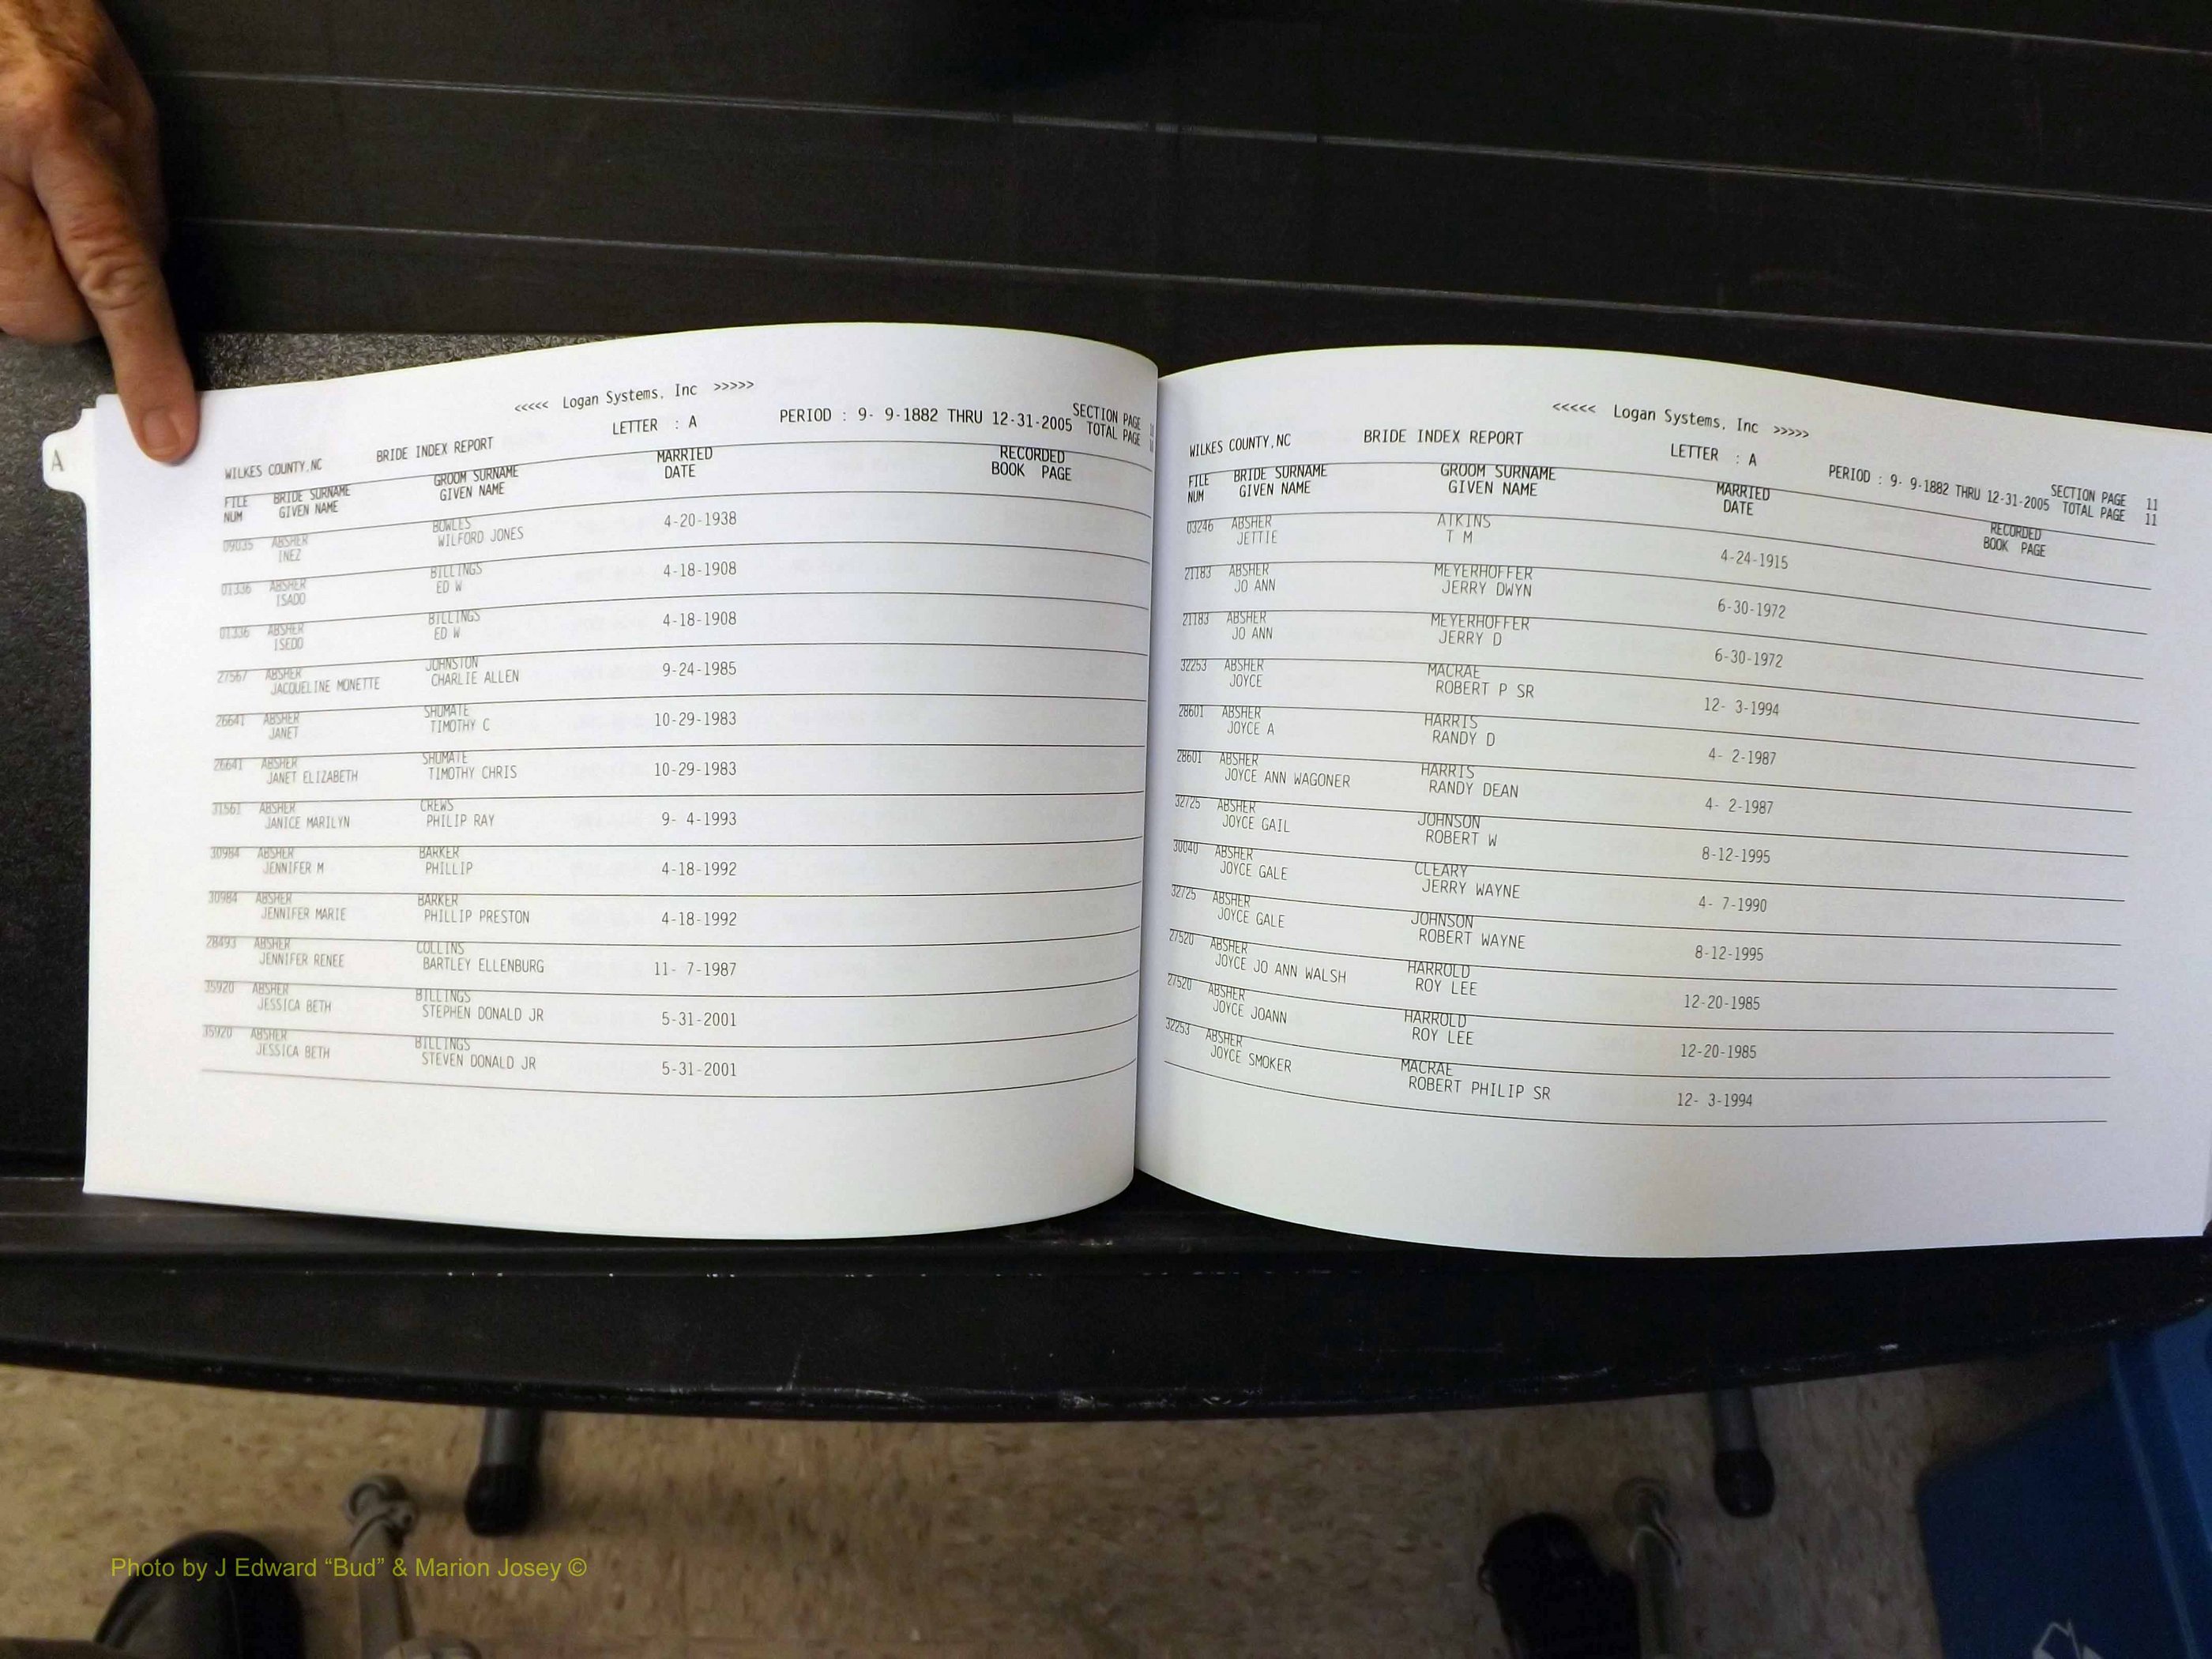 A
<<<<< Logan Systems, Inc >>>>>
WILKES COUNTY,NC BRIDE INDEX REPORT LETTER : A PERIOD : 9- 9-1882 THRU 12-31-2005 SECTION PAGE
TOTAL PAGE
FILE BRIDE SURNAME GROOM SURNAME MARRIED RECORDED
NUM GIVEN NAME GIVEN NAME DATE BOOK PAGE
09035 ABSHER BOWLES 4-20-1938
INEZ WILFORD JONES
01336 ABSHER BILLINGS 4-18-1908
ISADO ED W
01336 ABSHER BILLINGS 4-18-1908
ISEDO ED W
27567 ABSHER JOHNSTON 9-24-1985
JACQUELINE MONETTE CHARLIE ALLEN
26641 ABSHER SHUMATE 10-29-1983
JANET TIMOTHY C
26641 ABSHER SHUMATE 10-29-1983
JANET ELIZABETH TIMOTHY CHRIS
31561 ABSHER CREWS 9- 4-1993
JANICE MARILYN PHILIP RAY
30984 ABSHER BARKER 4-18-1992
JENNIFER M PHILLIP
30984 ABSHER BARKER 4-18-1992
JENNIFER MARIE PHILLIP PRESTON
28493 ABSHER COLLINS 11- 7-1987
JENNIFER RENEE BARTLEY ELLENBURG
35920 ABSHER BILLINGS 5-31-2001
JESSICA BETH STEPHEN DONALD JR
35920 ABSHER BILLINGS 5-31-2001
JESSICA BETH STEVEN DONALD JR
<<<<< Logan Systems, Inc >>>>>
WILKES COUNTY,NC BRIDE INDEX REPORT LETTER : A PERIOD : 9- 9-1882 THRU 12-31-2005 SECTION PAGE 11
TOTAL PAGE 11
FILE BRIDE SURNAME GROOM SURNAME MARRIED RECORDED
NUM GIVEN NAME GIVEN NAME DATE BOOK PAGE
03246 ABSHER ATKINS 4-24-1915
JETTIE T M
21183 ABSHER MEYERHOFFER 6-30-1972
JO ANN JERRY DWYN
21183 ABSHER MEYERHOFFER 6-30-1972
JO ANN JERRY D
32253 ABSHER MACRAE 12- 3-1994
JOYCE ROBERT P SR
28601 ABSHER HARRIS 4- 2-1987
JOYCE A RANDY D
28601 ABSHER HARRIS 4- 2-1987
JOYCE ANN WAGONER RANDY DEAN
32725 ABSHER JOHNSON 8-12-1995
JOYCE GAIL ROBERT W
30040 ABSHER CLEARY 4- 7-1990
JOYCE GALE JERRY WAYNE
32725 ABSHER JOHNSON 8-12-1995
JOYCE GALE ROBERT WAYNE
27520 ABSHER HARROLD 12-20-1985
JOYCE JO ANN WALSH ROY LEE
27520 ABSHER HARROLD 12-20-1985
JOYCE JOANN ROY LEE
32253 ABSHER MACRAE 12- 3-1994
JOYCE SMOKER ROBERT PHILIP SR
Photo by J Edward “Bud” & Marion Josey ©